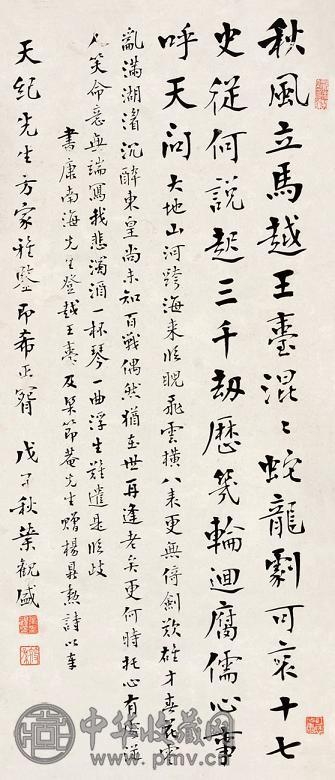 秋風立馬越王臺混々蛇龍劇可哀十七
史從何說起三千劫歷幾輪迴腐儒心事
呼天問大地山河跨海來臨睨飛雲橫八表更無倚劍歎雄才春花零
亂滿湖渚沉醉東皇尚未知百戰偶然猶在世再逢老矣更何時托心有
笑命意無端寫我悲濁酒一杯琴一曲浮生難遣是臨歧
書康南海先生登越王臺及梁節庵先生贈楊勳詩以奉
天紀先生方家雅鑒即希正腎戊子秋葉觀盛
中华收藏网
www.pmv.cn